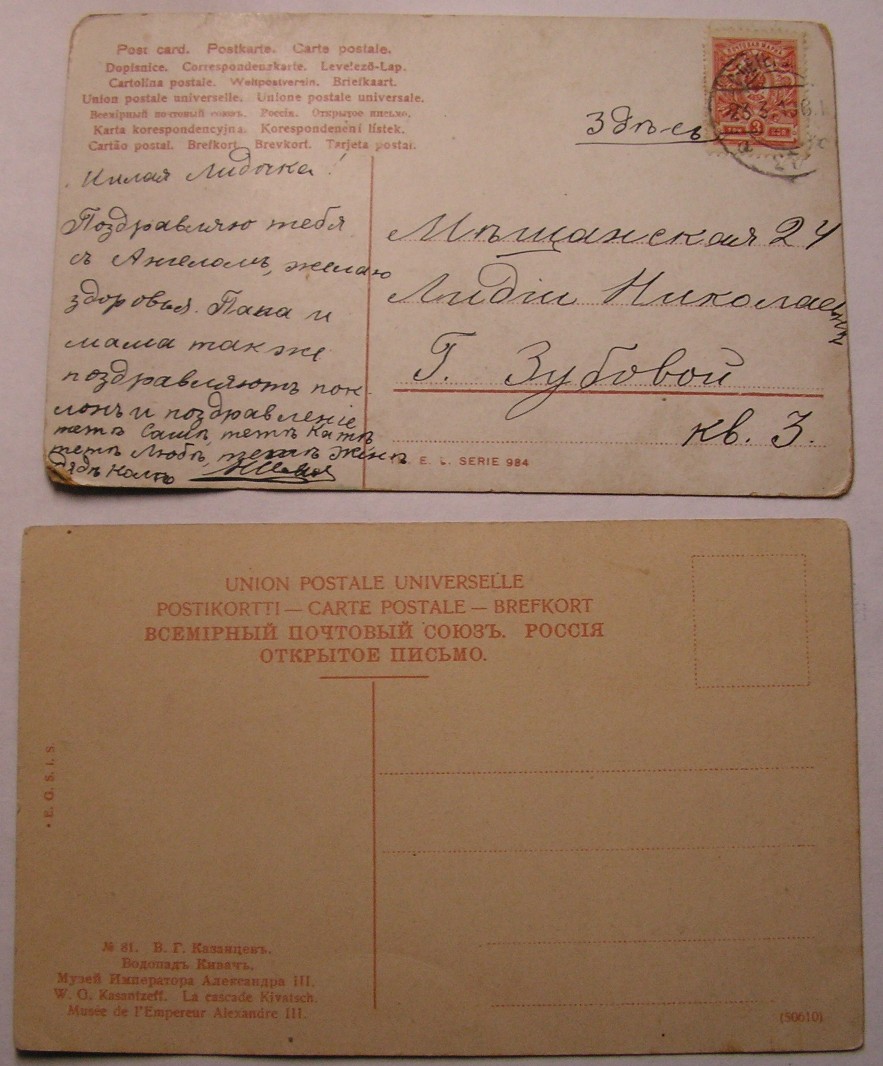 Post card. Postkarte. Carte postale.
Dopisnice. Correspondenzkarte. Levelező-Lap.
Cartolina postale. Weltpostverein. Briefkaart.
Union postale universelle. Unione postale universale.
Всемірный почтовый союзъ. Россія. Открытое письмо.
Karta korespondencyjna. Korespondenčni lístek.
Cartão postal. Brefkort. Brevkort. Tarjeta postal.
Здѣсь
3
Милая Лидочка!
Поздравляю тебя
съ Ангеломъ, желаю
здоровья. Папа и
мама также
поздравляютъ пок-
лонъ и поздравленіе
тетѣ Сашѣ, тетѣ Катѣ
тетѣ Любѣ, тетѣ Женѣ
дядѣ Колѣ
Мѣщанская 24
Лидіи Николаевнѣ
Г. Зубовой
кв. 3.
E. L. SERIE 984
UNION POSTALE UNIVERSELLE
POSTIKORTTI — CARTE POSTALE — BREFKORT
ВСЕМІРНЫЙ ПОЧТОВЫЙ СОЮЗЪ. РОССІЯ
ОТКРЫТОЕ ПИСЬМО.
• E. G. S. i. S.
№ 81. В. Г. Казанцевъ.
Водопадъ Кивачъ.
Музей Императора Александра III.
W. G. Kasantzeff. La cascade Kivatsch.
Musée de l'Empereur Alexandre III.
(S0610)